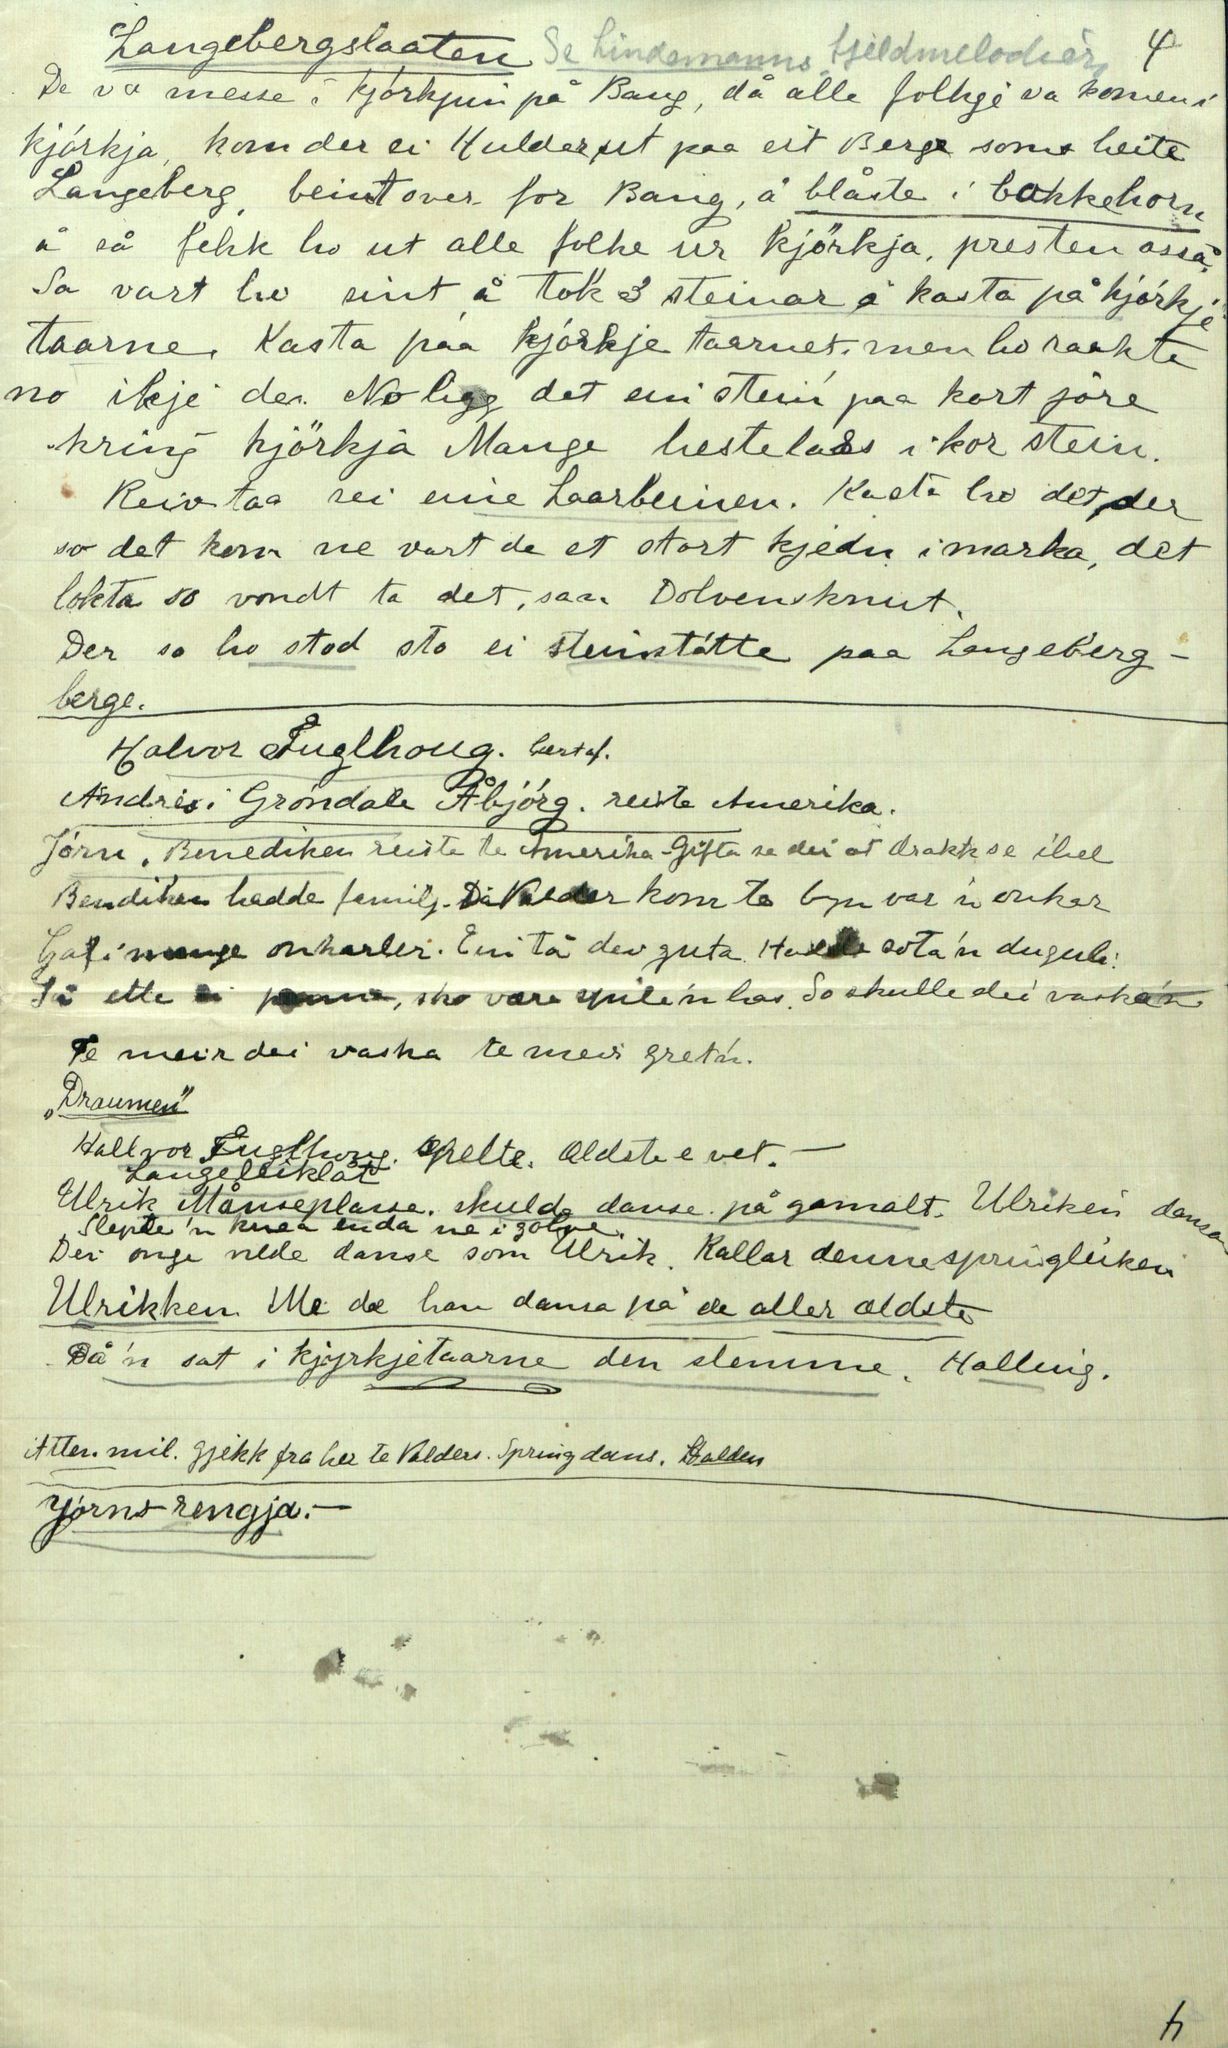 Langebergslaaten Se Lindemanns Fjeldmelodier 4
De va messe i kjörkjun på Bang, då alle folkje va komen i
kjörkja, kom der ei Hulder ut paa eit Berge soms heite
Langeberg, beint over for Bang, å blåste i bukkehorn
å så fekk ho ut alle folke ur kjörkja, presten osså.
Sa vart ho sint å tok 3 steinar å kasta på kjörkje
taarne. Kasta paa kjörkje taarnet. men ho raakte
no ikje der. No ligg det ein stein paa kort jöre
kring kjörkja Mange hestelass i kor stein.
Reiv taa sei eine Laarbeinen. Kasta ho det, der
so det kom ne vart de et stort kjedn i marka, det
lokta so vondt ta det, saa Dolvensknut.
Der so ho stod sto ei steinstötte paa Langeberg-
berge.
Halvor Fuglhoug.
Andres i Gröndale Åbjörg. reiste Amerika.
Jörn. Benediken reiste te Amerika Gifta se dei at drakk se ihel
Bendiken hadde familj. Då kom te byn var 'n onkar
Gaf i mange onkarler. Ein tå dei guta sota'n duguli.
Så ette ei, sko vara spile'n hos. So skulle dei vaska'n
Te meir dei vaska te meir gret'n.
"Draumen"
Hallvor Fuglhoug. Spelte. Aldste e vet. —
Langeleiklåt
Ulrik Månseplasse. skulde danse på gamalt. Ulriken dansa
Slepte'n knea enda ne i golve.
Dei onge vilde danse som Ulrik. Kallar denne springleiken
Ulrikken Me de han dansa på de aller aldste
Då'n sat i kjyrkjetaarne den slemme. Halling.
Atten mil. gjekk fra her te Valders. Springdans. Halden
Jörns-rengja. —
4